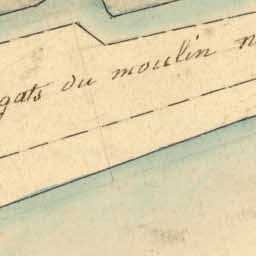 gats du moulin n